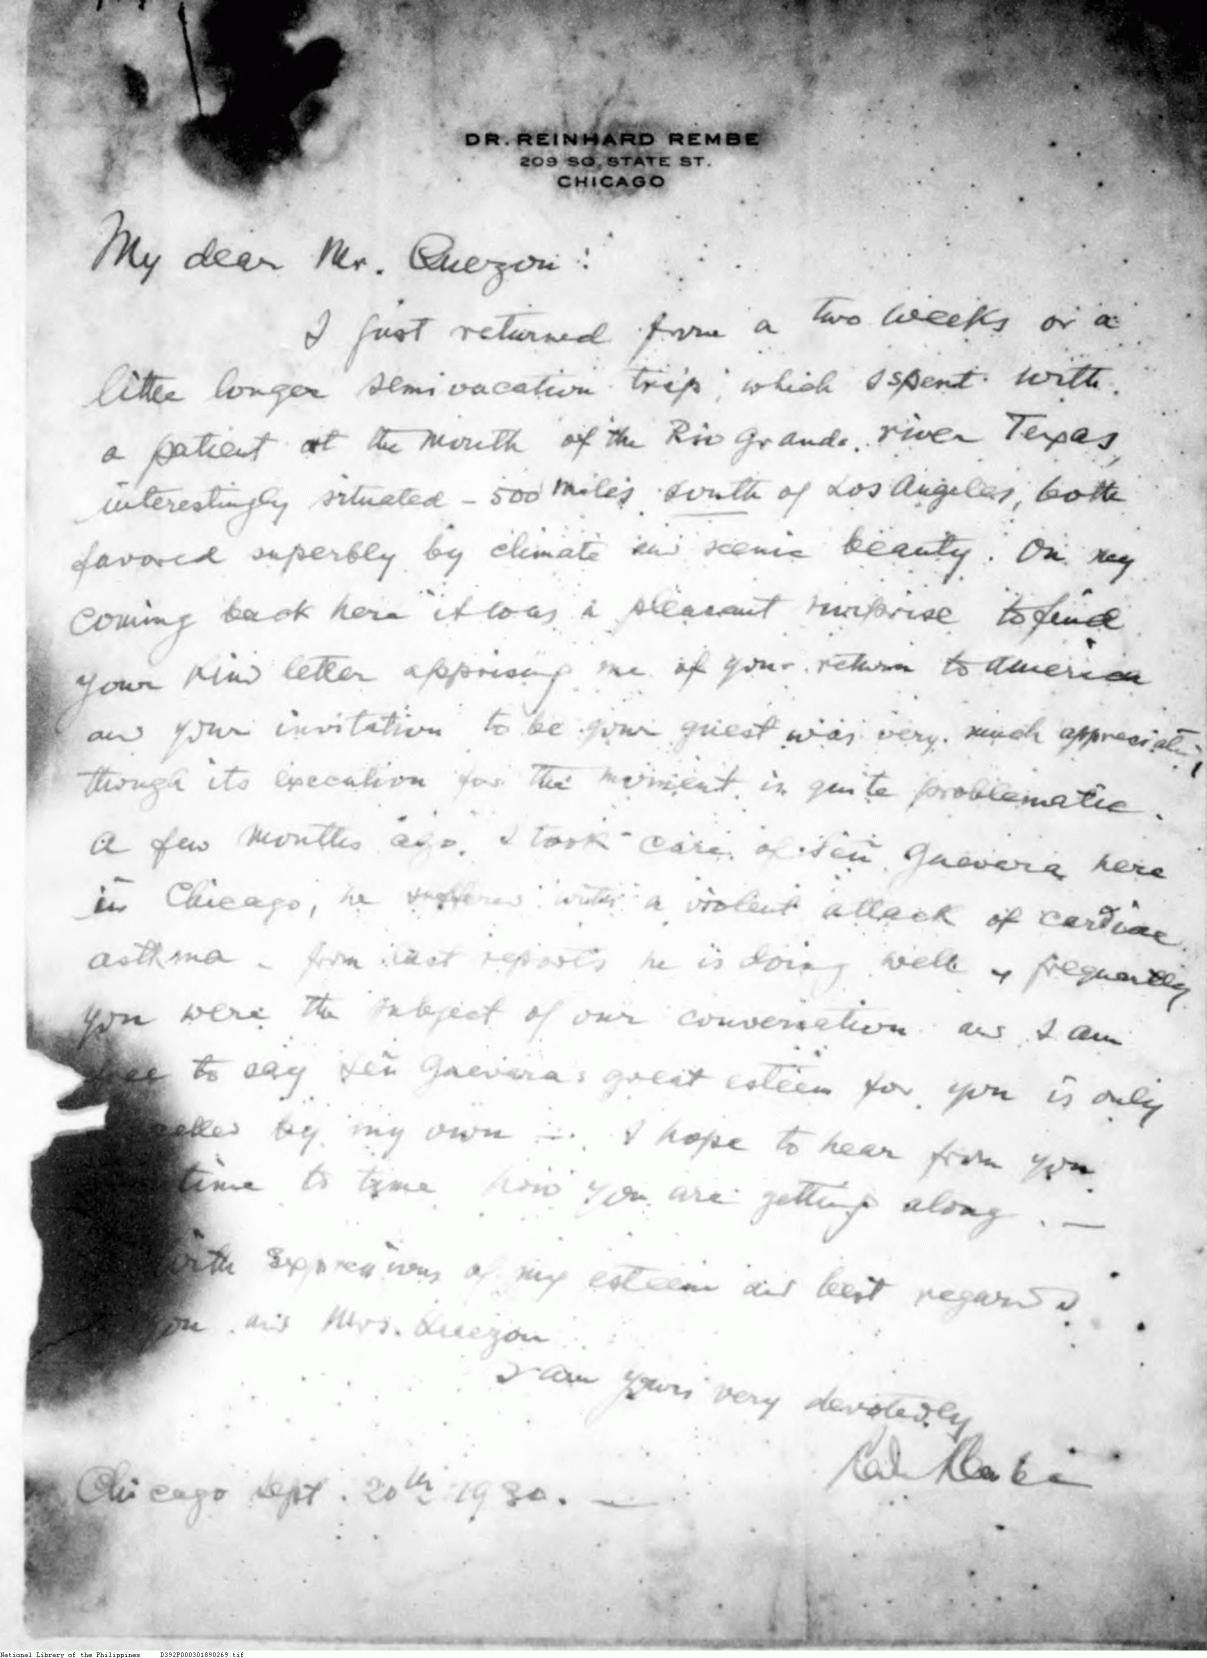 DR. REINHARD REMBE
209 SO. STATE ST.
CHICAGO
My dear Mr. Quezon:
I just returned from a two weeks or a
little longer semivacation trip, which I spent with
a patient at the mouth of the Rio Grande river Texas,
interestingly situated – 500 miles south of Los Angeles, both
favored superbly by climate and scenic beauty. On my
coming back here it was a pleasant surprise to find
your kind letter apprising me of your return to America
and your invitation to be your guest was very much appreciated,
though its execution for the moment is quite problematic.
A few months ago I took care of Señ Guevera here
in Chicago, he suffered with a violent attack of cardiac
asthma – from last reports he is doing well & frequently
you were the subject of our conversation and I am
to say Señ Guevara's great esteem for you is only
by my own –. I hope to hear from you
time to tyme how you are getting along. –
with expressions of my esteem and best regards
and Mrs. Quezon
I am yours very devotedly
Rembe
Chicago Sept. 20th 1930. –
National Library of the Philippines D392P000301890269.tif